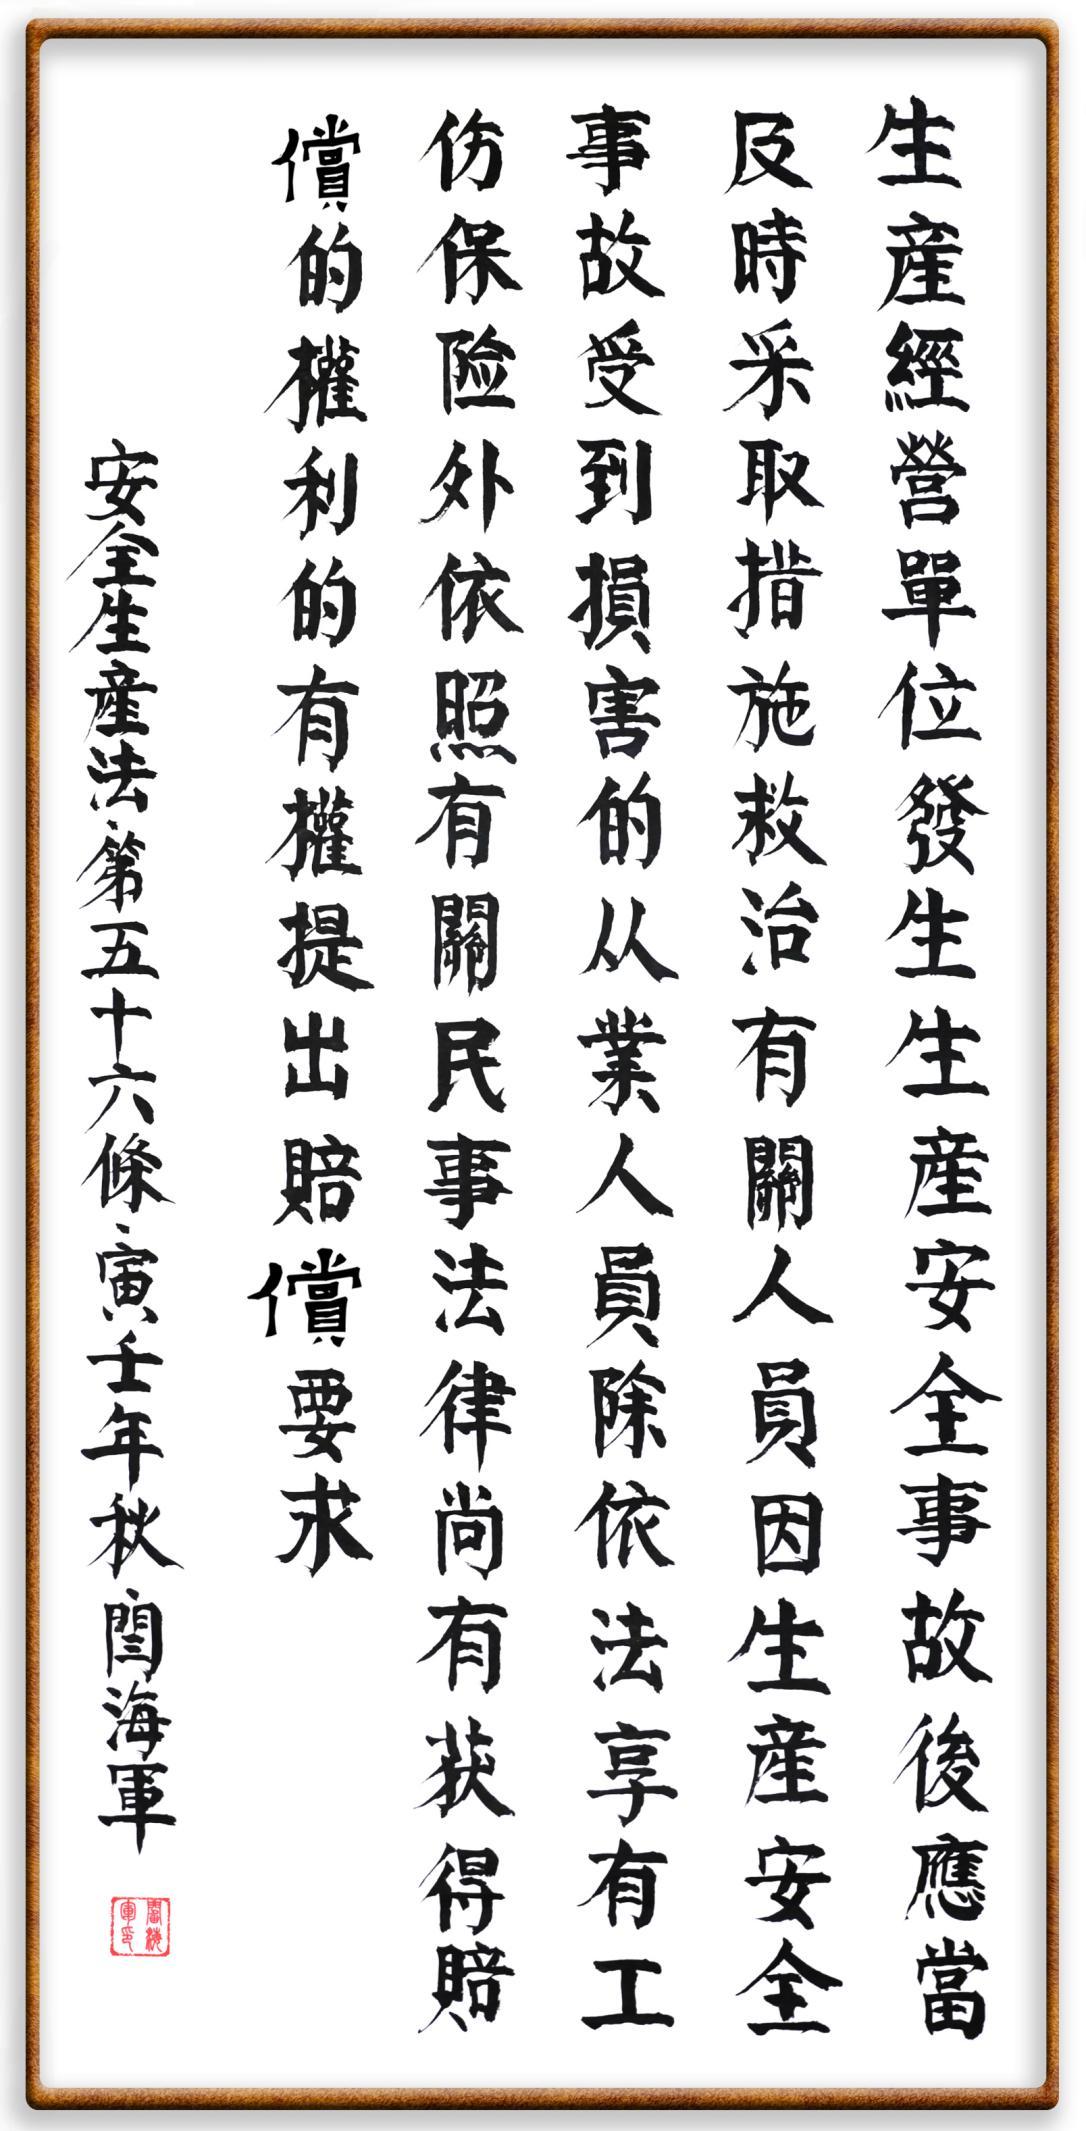 生産經營單位發生生産安全事故後應當
及時采取措施救治有關人員因生産安全
事故受到損害的从業人員除依法享有工
伤保险外依照有關民事法律尚有获得賠
償的權利的有權提出賠償要求
安全生産法第五十六條寅壬年秋閆海軍
閆海軍印